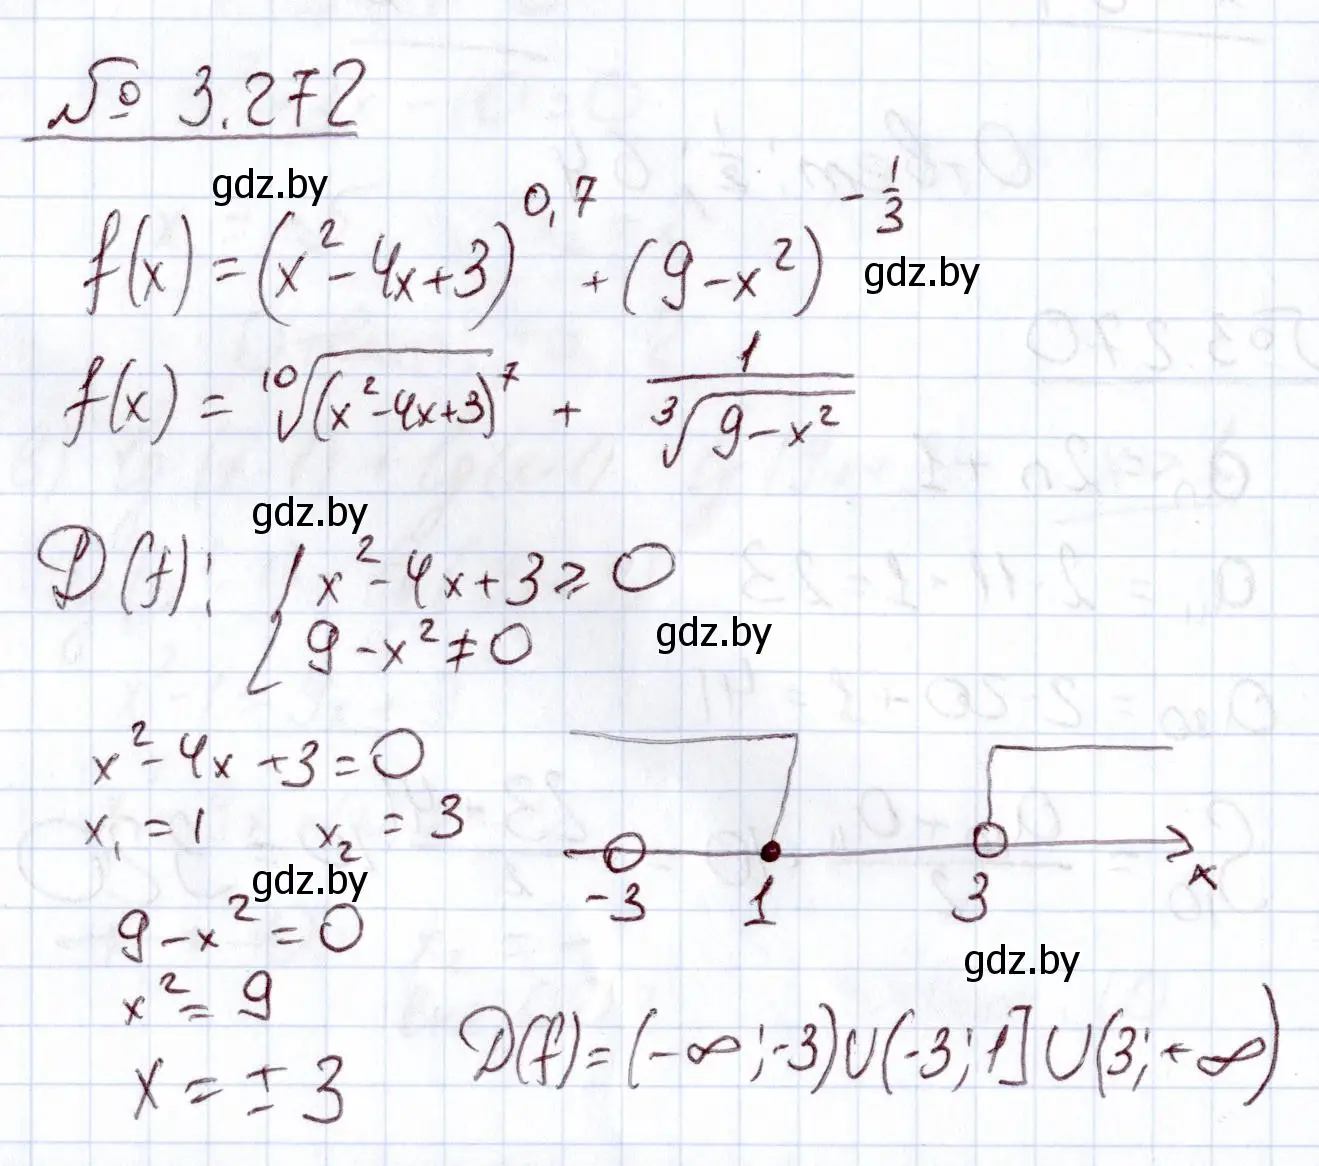 № 3.272
gdz.by
f(x) = (x² - 4x + 3)^0,7 + (9 - x²)^-1/3
gdz.by
f(x) = ¹⁰√(x² - 4x + 3)⁷ + 1/³√(9 - x²)
gdz.by
D(f): { x² - 4x + 3 ≥ 0
9 - x² ≠ 0
gdz.by
x² - 4x + 3 = 0
x₁ = 1 x₂ = 3
gdz.by
9 - x² = 0
x² = 9
x = ± 3
-3 1 3 x
gdz.by
D(f) = (-∞; -3) ∪ (-3; 1] ∪ (3; +∞)